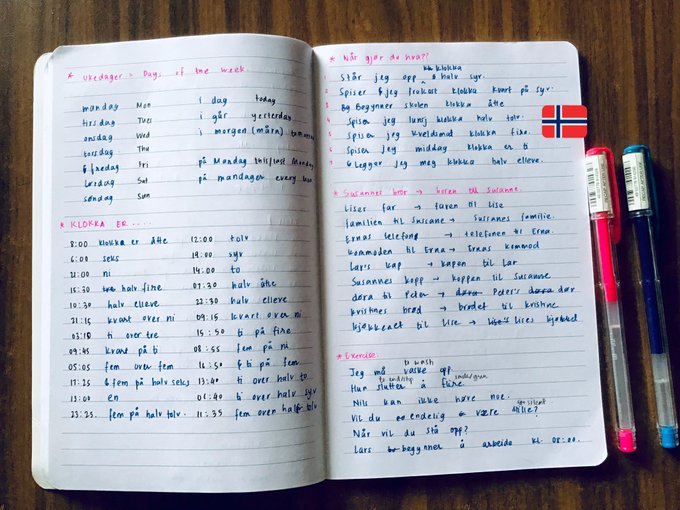 * Ukedager = Days of the week
mandag Mon i dag today
tirsdag Tues i går yesterday
onsdag Wed i morgen (mårn)
torsdag Thu
fredag Fri på Mandag this/last Monday
lørdag Sat på mandager every
søndag Sun
* KLOKKA ER ....
8:00 klokka er åtte 12:00 tolv
6:00 seks 19:00 syv
21:00 ni 14:00 to
15:30 halv fire 07:30 halv åtte
10:30 halv elleve 22:30 halv elleve
21:15 kvart over ni 09:15 kvart over ni
03:10 ti over tre 15:50 ti på fire
09:45 kvart på ti 08:55 fem på ni
05:05 fem over fem 16:50 ti på fem
17:25 fem på halv seks 13:40 ti over halv to
13:00 en 06:40 ti over halv syv
23:25 fem på halv tolv. 11:35 fem over halv tolv
* Når gjør du hva??
1 Står jeg opp klokka halv syv.
2 Spiser jeg frokost klokka kvart på syv.
3 Begynner skolen klokka åtte
4 Spiser jeg lunsj klokka halv tolv.
5 Spiser jeg kveldsmad klokka fire.
6 Spiser jeg middag klokka er ti
7 Leggar jeg meg klokka halv elleve.
* Susannes bror → broren til Susanne.
Lises far → faren til Lise
familien til Susanne → Susannes familie.
Ernas telefon → telefonen til Erna.
kommoden til Erna → Ernas kommod
Lar's kap → kapen til Lar
Susannes kopp → koppen til Susanne
døra til Peter → Peter's dør
kristines brød → brødet til kristine
kjøkkenet til Lise → Lises
* Exercise.
to wash
Jeg må vaske opp.
to end/stop smile/grin
Hun slutter å flire.
Nils kan ikke høre noe.
silent
Vil du endelig være stille?
Når vil du stå opp?
Lars begynner å arbeide kl. 08:00.